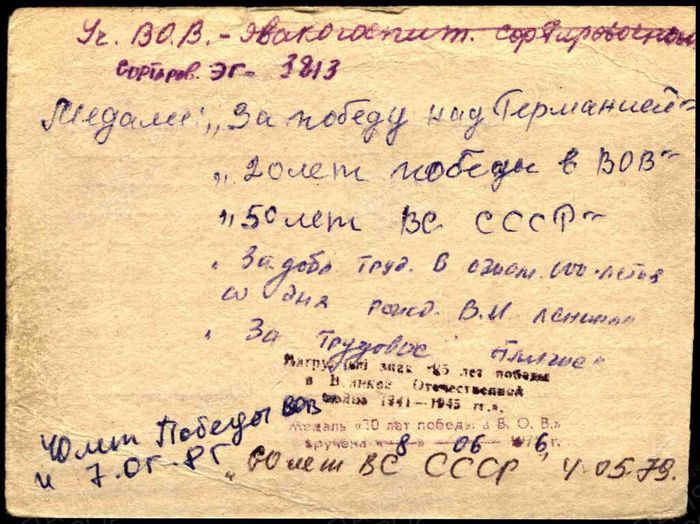 Уч. В.О.В. - Эвакогоспит. сортировочном
сортиров. ЭГ- 3813
Медали: „За победу над Германией"
„20 лет победы в ВОВ"
„50 лет ВС СССР"
„За добл. труд. В ознам. 100-летия
со дня рожд. В.И. Ленина"
„За трудовое отличие"
Нагрудный знак «25 лет победы
в Великой Отечественной
войне 1941—1945 гг.».
Медаль «30 лет победы в В. О. В.»
вручена «8» 06 1976 г.
40 лет Победы ВОВ
„60 лет ВС СССР 4.05.79.